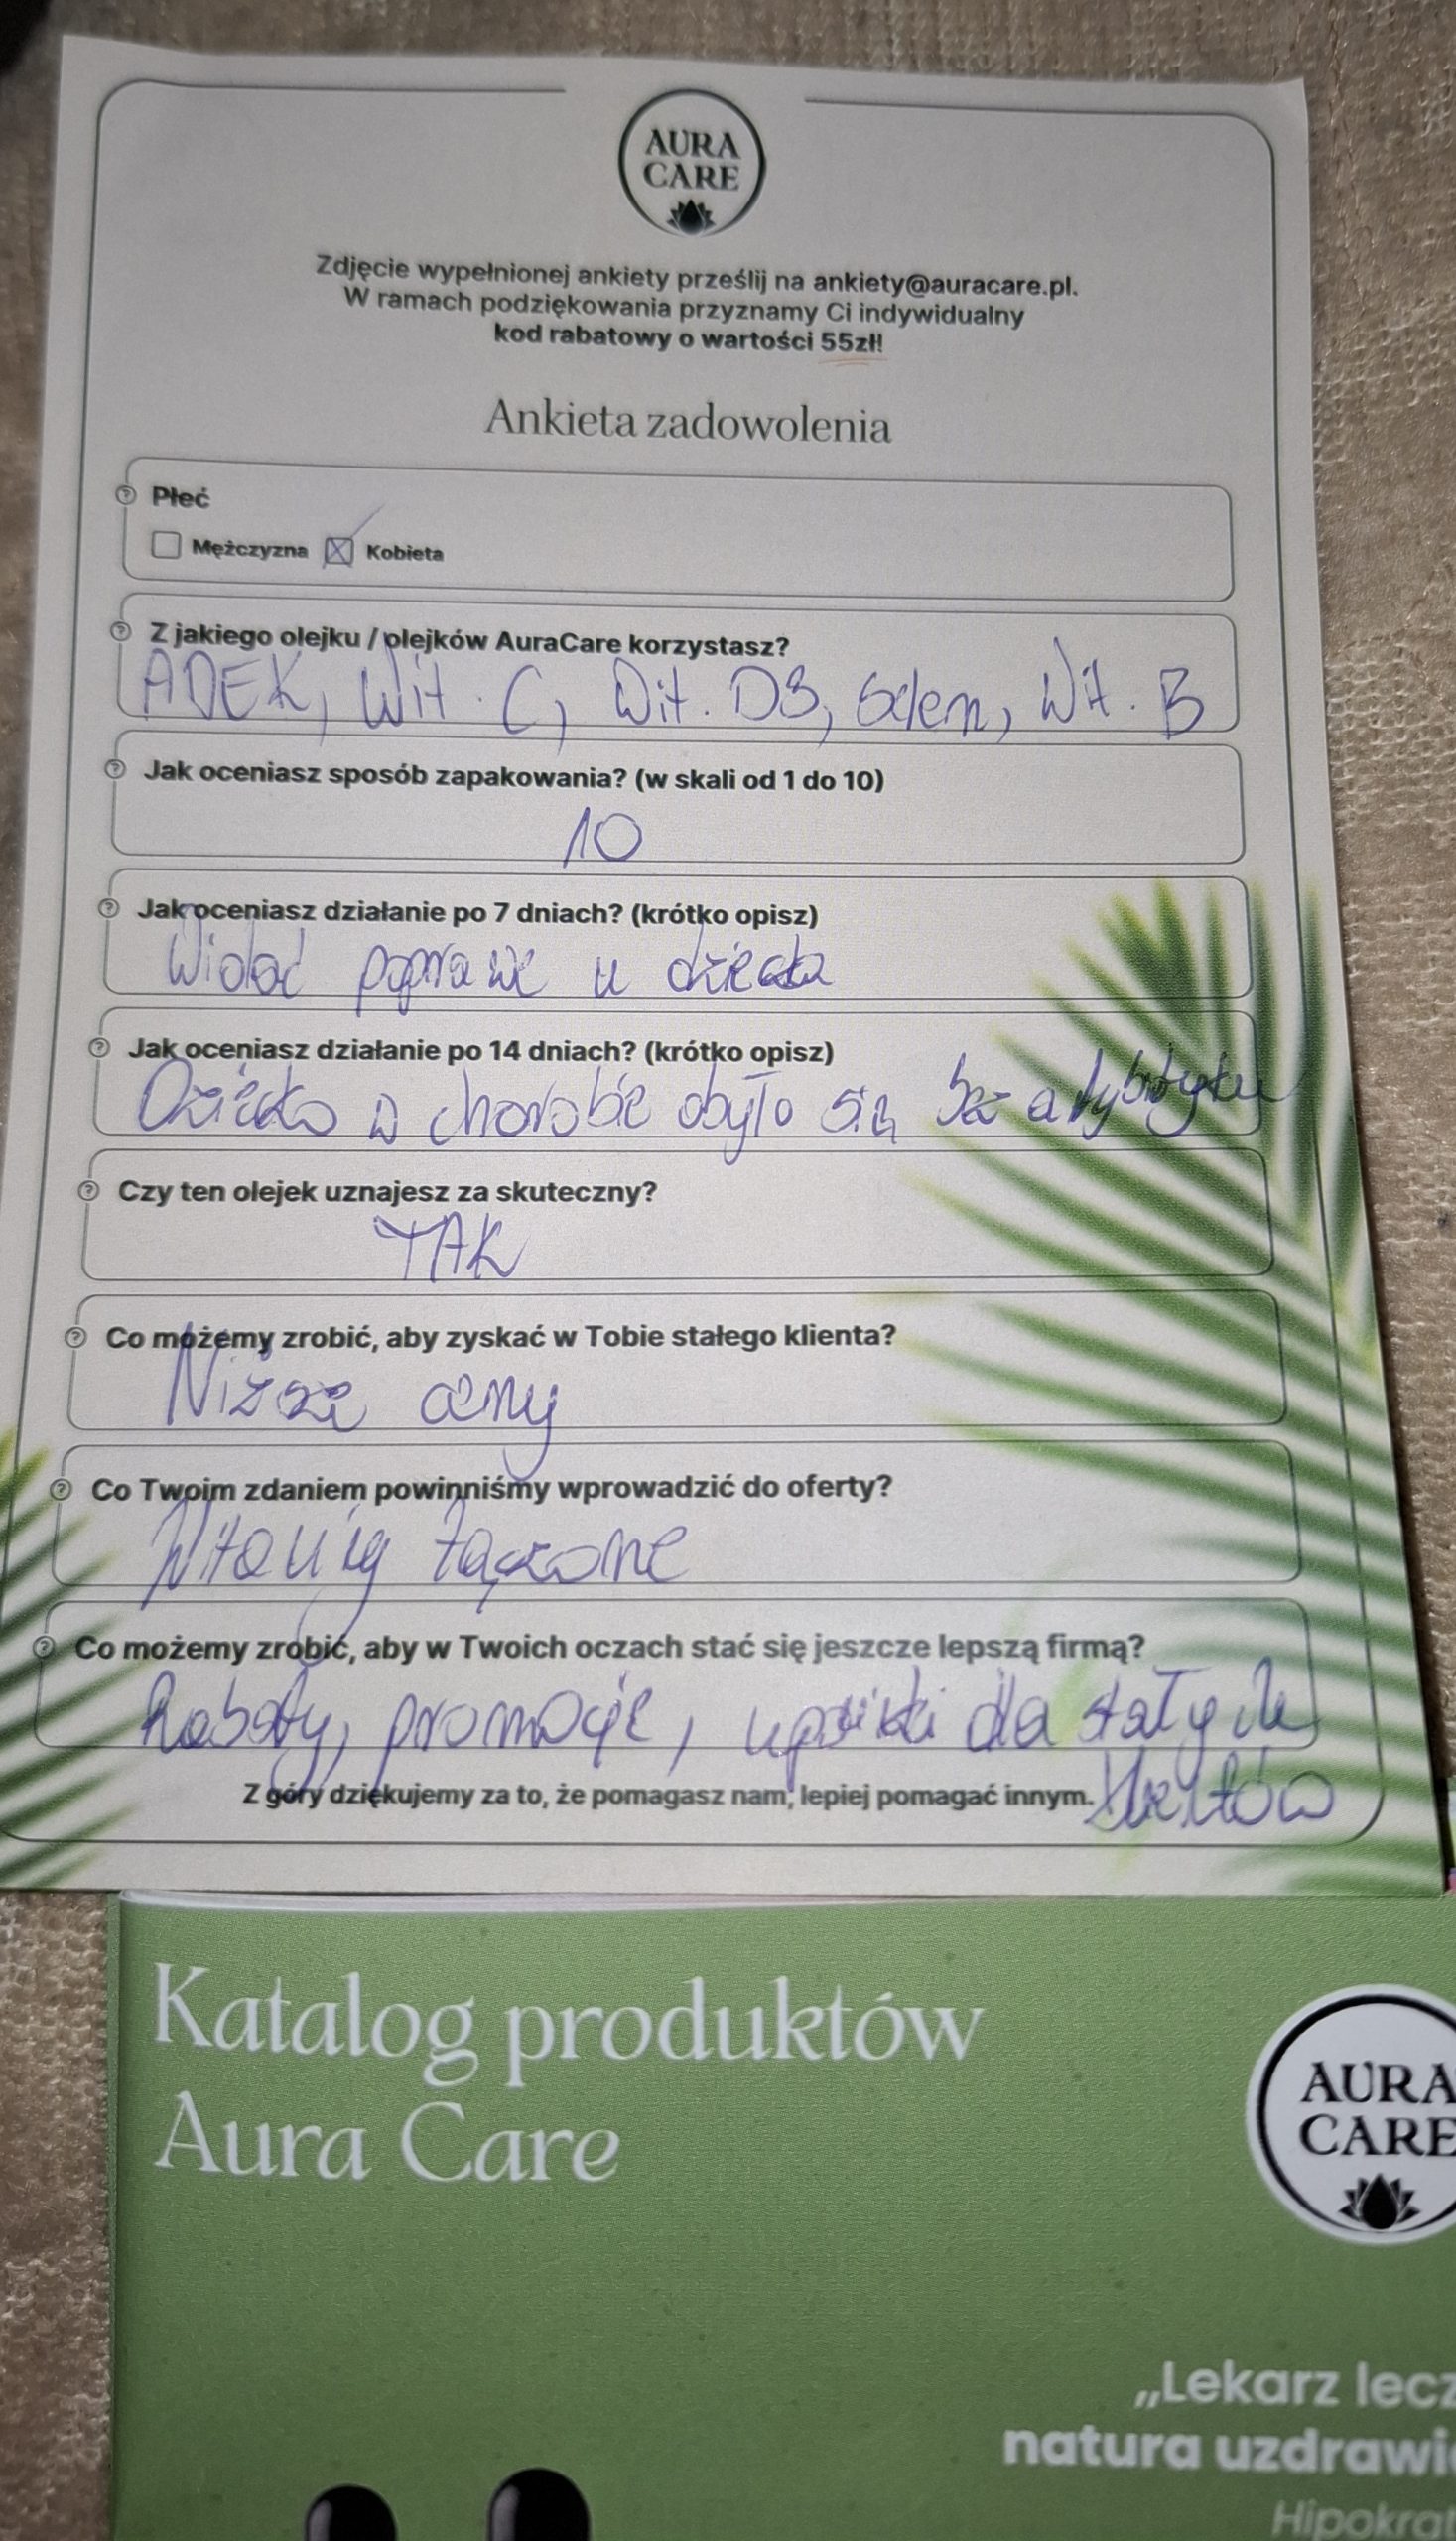 AURA
CARE
Zdjęcie wypełnionej ankiety prześlij na ankiety@auracare.pl.
W ramach podziękowania przyznamy Ci indywidualny
kod rabatowy o wartości 55zł!
Ankieta zadowolenia
Płeć
Mężczyzna Kobieta
Z jakiego olejku / olejków AuraCare korzystasz?
ADEK, Wit. C, Wit. D3, Selen, Wit. B
Jak oceniasz sposób zapakowania? (w skali od 1 do 10)
10
Jak oceniasz działanie po 7 dniach? (krótko opisz)
Widać poprawę u dziecka
Jak oceniasz działanie po 14 dniach? (krótko opisz)
Dziecko w chorobie obyło się bez
Czy ten olejek uznajesz za skuteczny?
TAK
Co możemy zrobić, aby zyskać w Tobie stałego klienta?
Niższe ceny
Co Twoim zdaniem powinniśmy wprowadzić do oferty?
łączone
Co możemy zrobić, aby w Twoich oczach stać się jeszcze lepszą firmą?
Rabaty, promocje, dla stałych
Z góry dziękujemy za to, że pomagasz nam, lepiej pomagać innym.
klientów
Katalog produktów
Aura Care
AURA
CARE
„Lekarz lecz
natura uzdrawi
Hipokrat